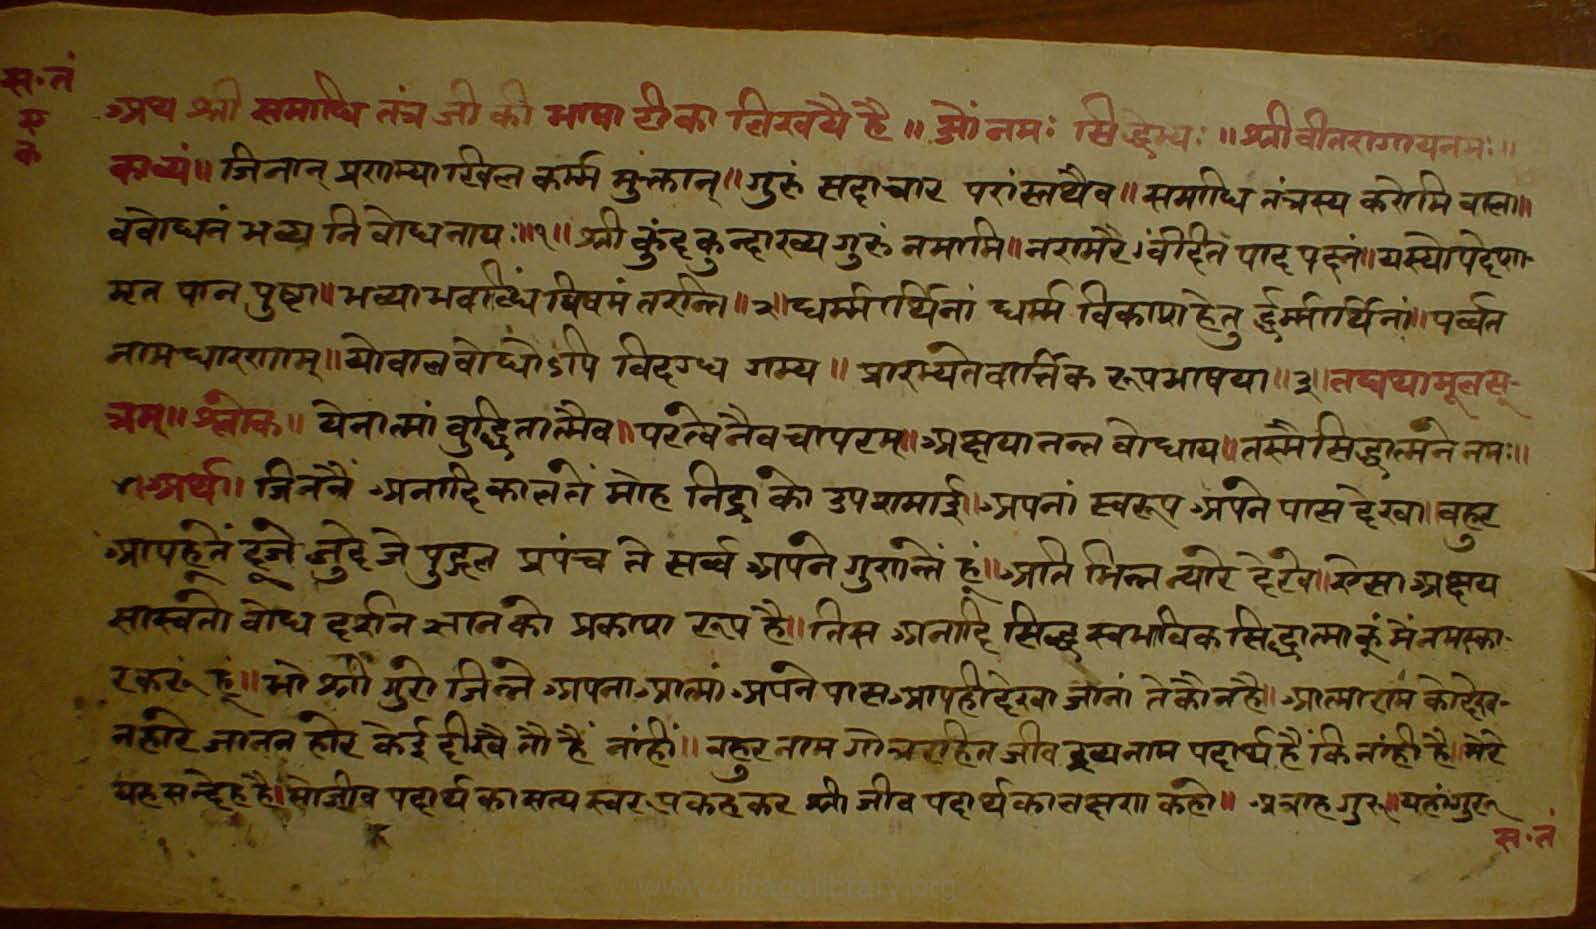 स॰तं
अथ श्री समाधि तंत्र जी की भाषा टीका लिखयै है ॥ ओं नमः सिद्धेभ्यः ॥ श्रीवीतरागायनमः ॥
काव्यं ॥ जिनान् प्रणम्याखिल कर्म्म मुक्तान् ॥ गुरुं सदाचार परांस्तथैव ॥ समाधि तंत्रस्य करोमि वाला ॥
ववोधनं भव्य निवोधनाय ः ॥१॥ श्री कुंदकुन्दाख्य गुरुं नमामि ॥ नरामरै र्वंदित पाद पद्मं ॥ यस्योपदेशा-
मृत पान पुष्टा ॥ भव्या भवाब्धिं विषमं तरन्ति ॥२॥ धर्म्मार्थिनां धर्म्म विकाश हेतु र्द्धर्म्मार्थिनां ॥ पर्व्वत
नाम धारणाम् ॥ योवालवोधोऽपि विदग्ध गम्य ॥ प्रारभ्यतेवार्त्तिक रूपभाषया ॥३॥ तद्यथामूलसू-
त्रम् ॥ श्लोक ॥ येनात्मां वुद्धितात्मैव ॥ परत्वेनैव चापरम् ॥ अक्षयानन्त वोधाय ॥ तस्मै सिद्धात्मने नमः ॥
अर्थ ॥ जिननैं अनादि कालतें मोह निद्रा को उपशमाई ॥ अपनां स्वरूप अपने पास देखा ॥ वहुर
आपहतें दूजे जुदे जे पुद्गल प्रपंच ते सर्व्व अपने गुणान्तें हूं ॥ अति भिन्न न्यारे देखे ॥ ऐसा अक्षय
सास्वतो वोध दर्शन ज्ञान को प्रकाश रूप है ॥ तिस अनादि सिद्ध स्वभाविक सिद्धात्माकूं मैं नमस्का-
र करूं हूं ॥ भो श्री गुरो जिन्ने अपना आत्मां अपने पास आपहीदेखा जानां ते कौन है ॥ आत्माराम को देख-
नहारे जानन होर केई दीखै तौ हैं नांहीं ॥ वहुर नाम गोत्र रहित जीव द्रव्य नाम पदार्थ हैं कि नांही है ॥ मेरे
यह सन्देह है ॥ सो जीव पदार्थ का सत्य स्वरूप कहकर श्री जीव पदार्थ का लक्षण कहो ॥ अत्राह गुरु ॥ यहां गुरु
स॰तं
www.vitragelibrary.org